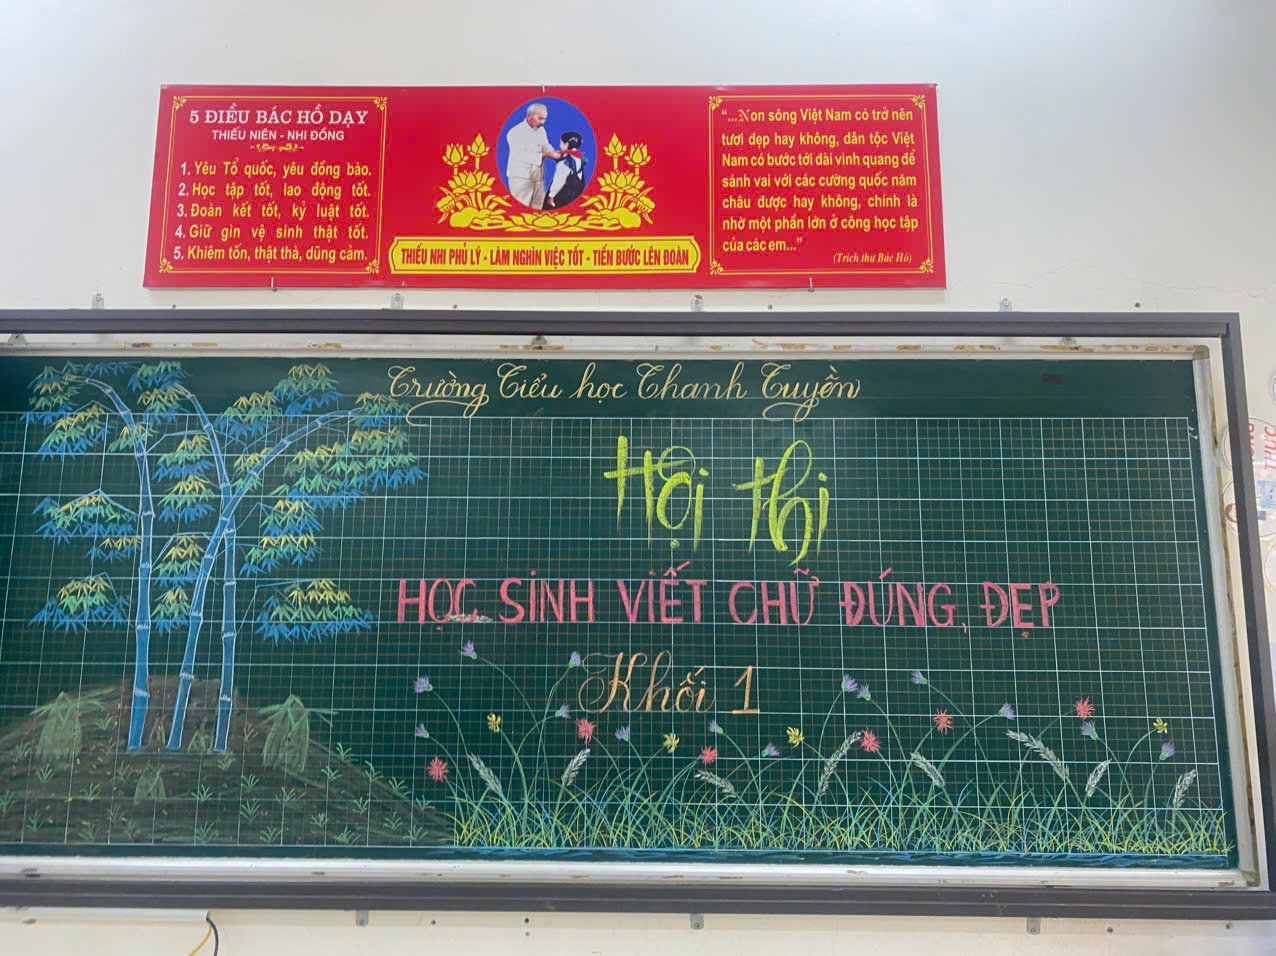 5 ĐIỀU BÁC HỒ DẠY
THIẾU NIÊN - NHI ĐỒNG
1. Yêu Tổ quốc, yêu đồng bào.
2. Học tập tốt, lao động tốt.
3. Đoàn kết tốt, kỷ luật tốt.
4. Giữ gìn vệ sinh thật tốt.
5. Khiêm tốn, thật thà, dũng cảm.
THIẾU NHI PHỦ LÝ - LÀM NGHÌN VIỆC TỐT - TIẾN BƯỚC LÊN ĐOÀN
"...Non sông Việt Nam có trở nên
tươi đẹp hay không, dân tộc Việt
Nam có bước tới đài vinh quang để
sánh vai với các cường quốc năm
châu được hay không, chính là
nhờ một phần lớn ở công học tập
của các em..."
(Trích thư Bác Hồ)
Trường Tiểu học Thanh Tuyền
Hội thi
HỌC SINH VIẾT CHỮ ĐÚNG, ĐẸP
Khối 1
THỨC